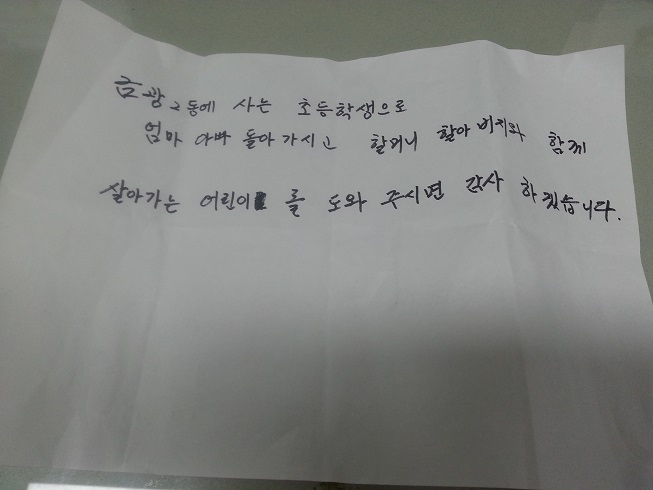 금광2동에 사는 초등학생으로
엄마 아빠 돌아가시고 할머니 할아버지와 함께
살아가는 어린이를 도와 주시면 감사 하겠습니다.